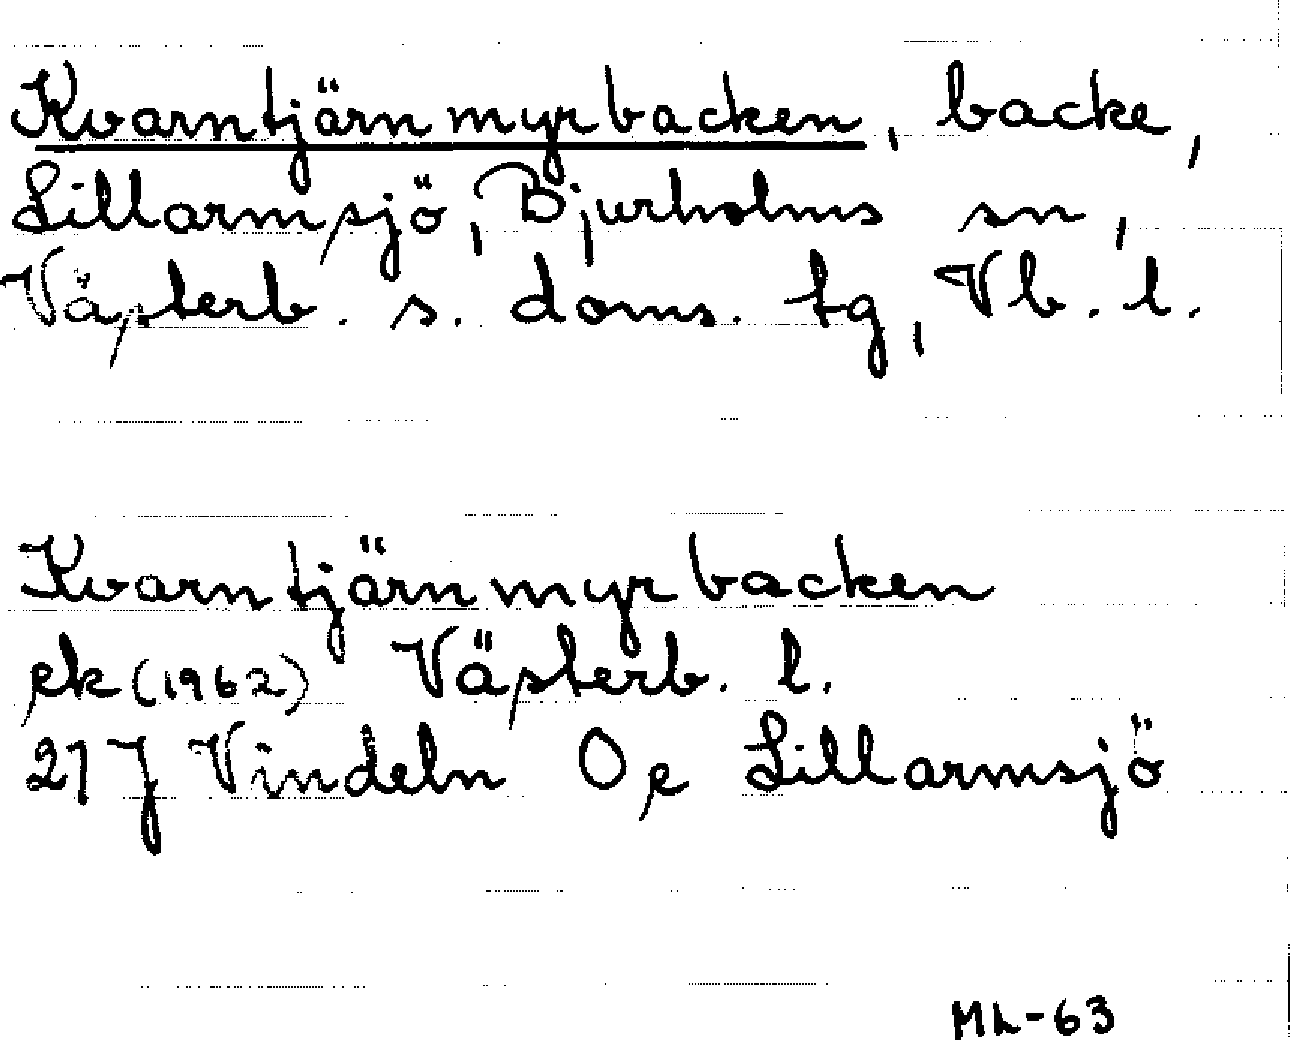 Kvarntjärnmyrbacken, backe,
Lillarmsjö, Bjurholms sn,
Västerb. s. doms. tg, Vb. l.
Kvarntjärnmyrbacken
ek (1962) Västerb. l.
21 J Vindeln Oe Lillarmsjö
ML-63